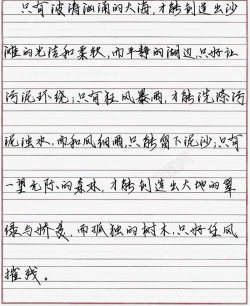 只有波涛汹涌的大海,才能创造出沙
滩的光洁和柔软,而平静的湖边,只好让
污泥环绕;只有狂风暴雨,才能洗除污
泥浊水,而和风细雨,只能留下泥沙;只有
一望无际的森林,才能创造出大地的翠
绿与娇美,而孤独的树木,只好任风
摧残。